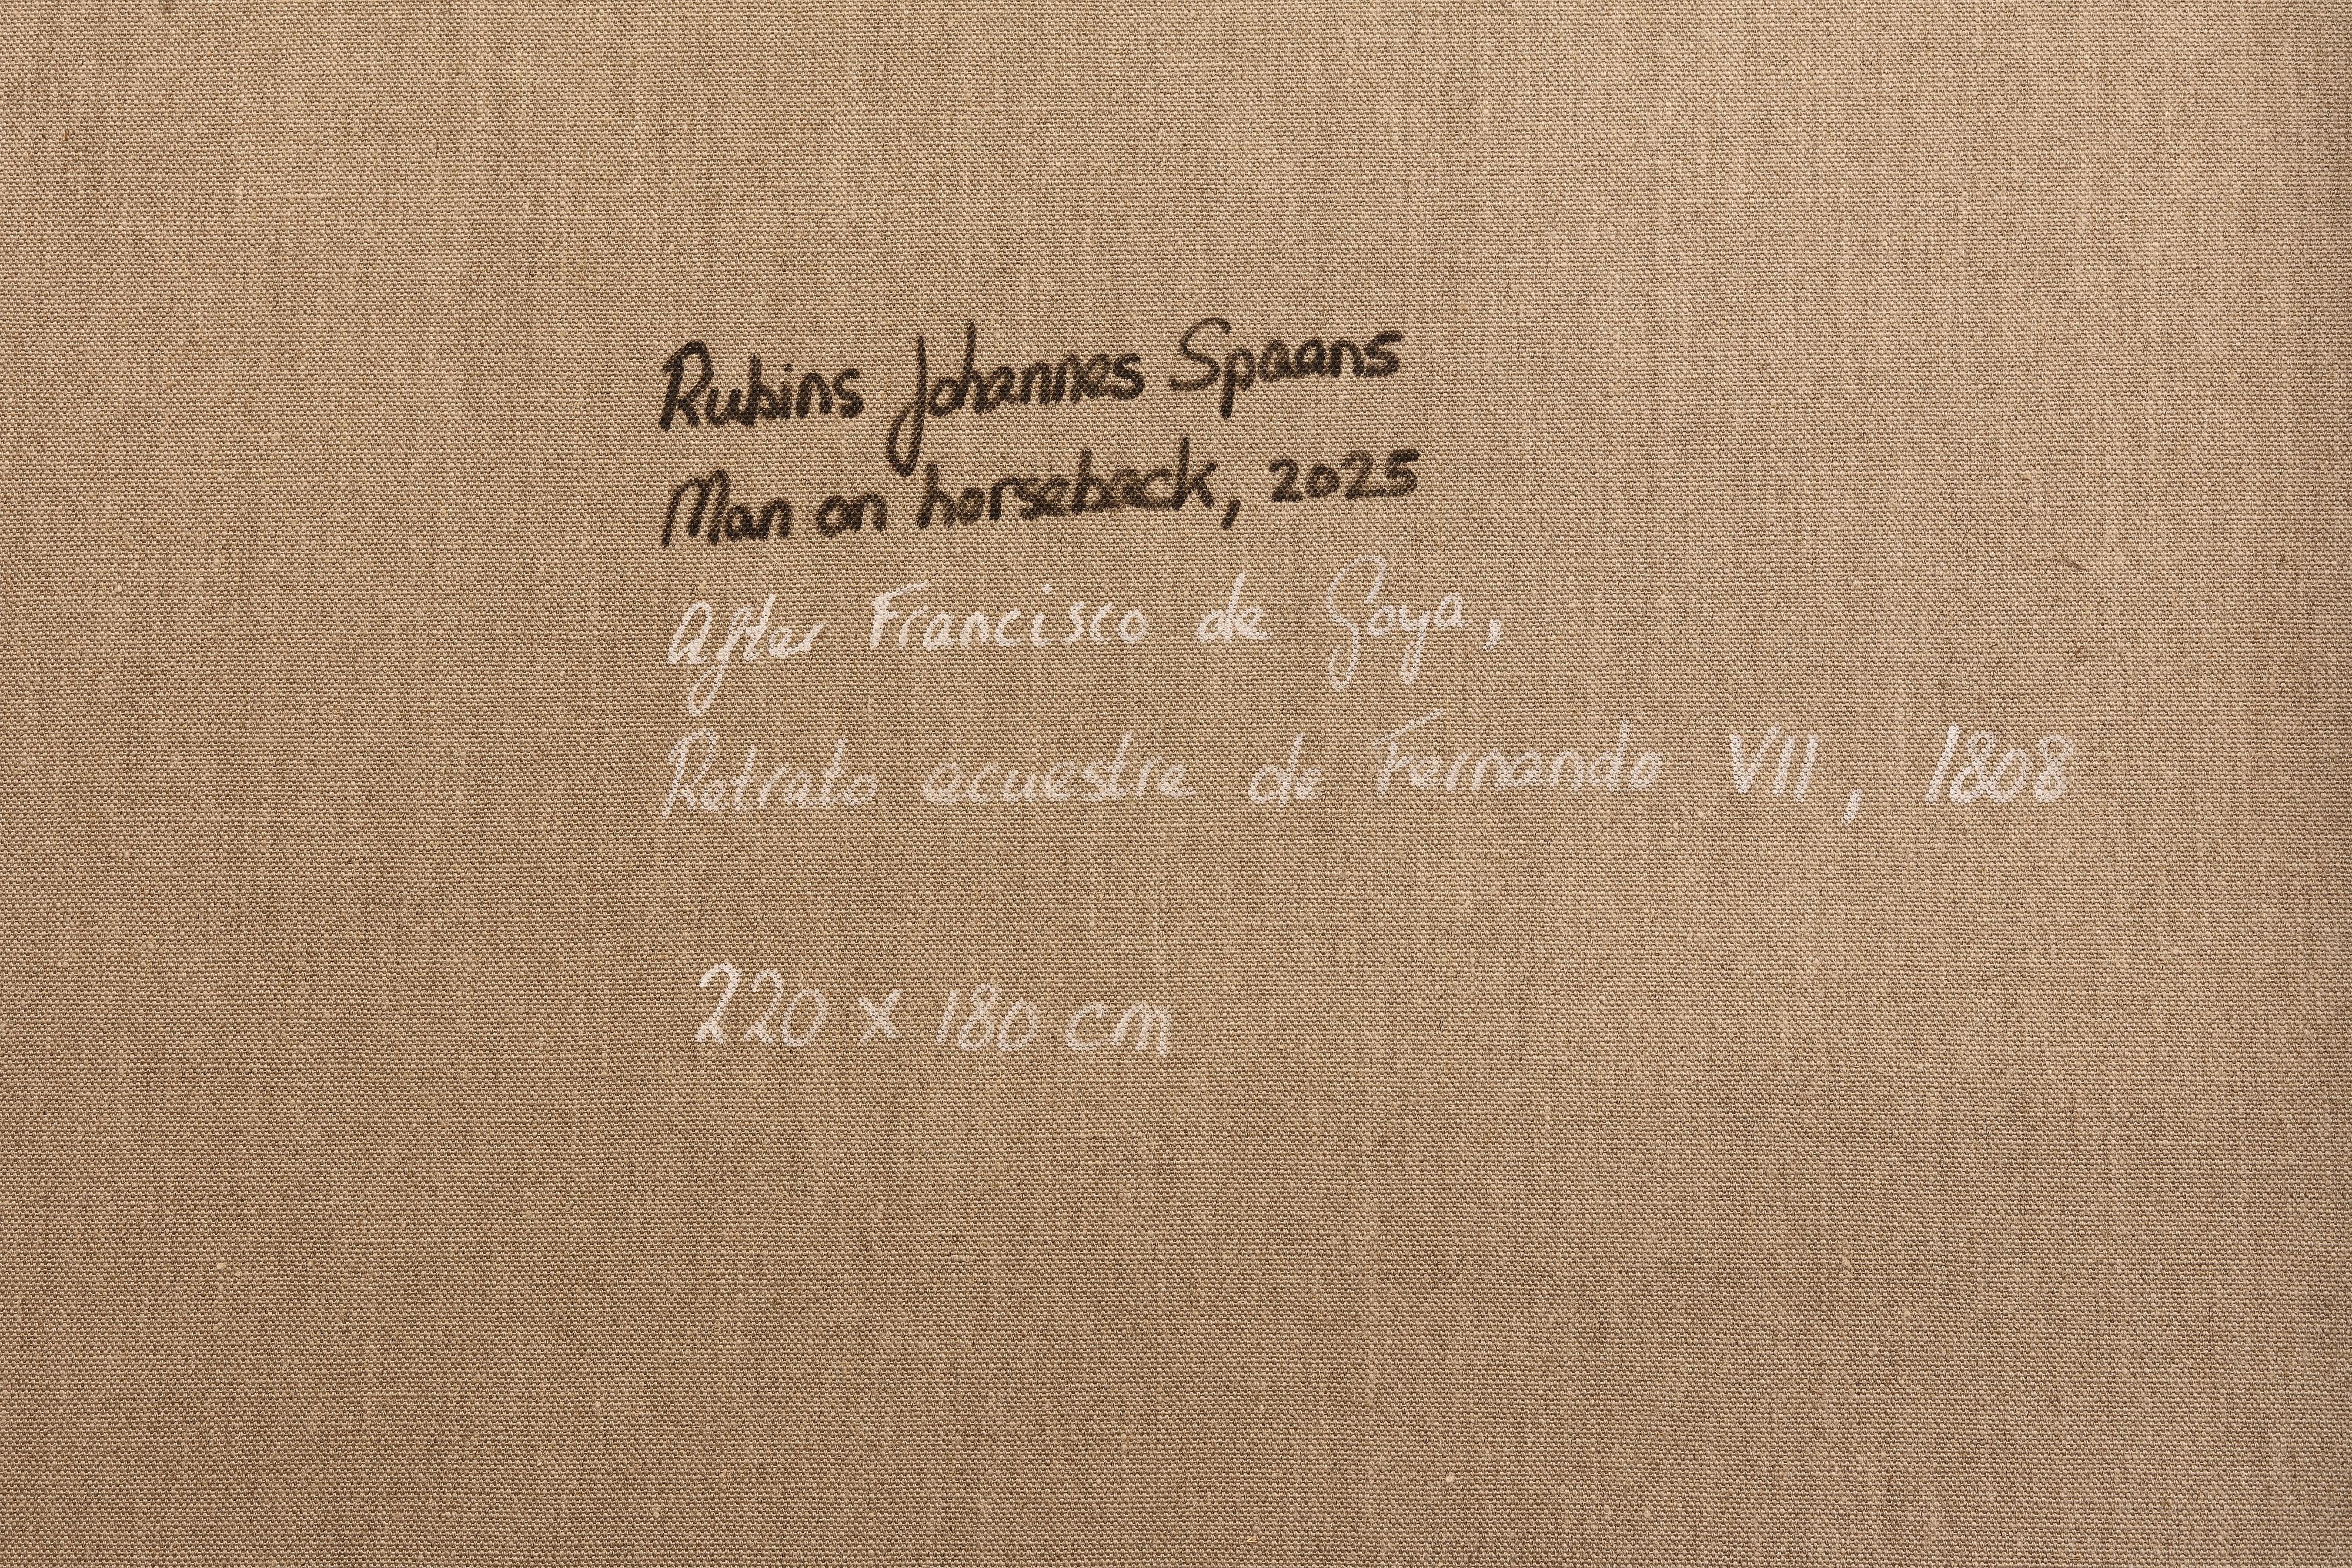 Rubins Johannes Spaans
Man on horseback, 2025
After Francisco de Goya,
Retrato ecuestre de Fernando VII, 1808
220 x 180 cm